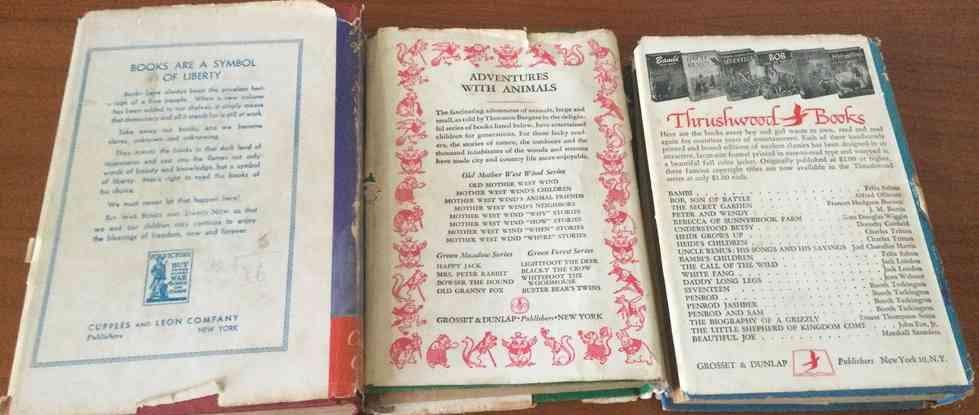 BOOKS ARE A SYMBOL
OF LIBERTY
Books have always been the priceless heri-
tage of a free people. When a new volume
has been added to our shelves, it simply means
that democracy and all it stands for is still at work.
Take away our books, and we become
slaves, unknown and unknowing.
They scorned the books in that dark land of
repression and cast into the flames not only
words of beauty and knowledge but a symbol
of liberty. Man's right to read the books of
his choice.
We must never let that happen here!
BUY WAR BONDS AND STAMPS NOW so that
we and our children may continue to enjoy
the blessings of freedom, now and forever.
FOR VICTORY
BUY
UNITED
STATES
WAR
BONDS
AND
STAMPS
CUPPLES AND LEON COMPANY
Publishers NEW YORK
ADVENTURES
WITH ANIMALS
The fascinating adventures of animals, large and
small, as told by Thornton Burgess in the delight-
ful series of books listed below, have entertained
children for generations. For those lucky read-
ers, the stories of nature, the outdoors and the
thousand inhabitants of the woods and streams
have made city and country life more enjoyable.
Old Mother West Wind Series
OLD MOTHER WEST WIND
MOTHER WEST WIND'S CHILDREN
MOTHER WEST WIND'S ANIMAL FRIENDS
MOTHER WEST WIND'S NEIGHBORS
MOTHER WEST WIND "WHY" STORIES
MOTHER WEST WIND "HOW" STORIES
MOTHER WEST WIND "WHEN" STORIES
MOTHER WEST WIND "WHERE" STORIES
Green Meadow Series Green Forest Series
HAPPY JACK LIGHTFOOT THE DEER
MRS. PETER RABBIT BLACKY THE CROW
BOWSER THE HOUND WHITEFOOT THE
WOODMOUSE
OLD GRANNY FOX BUSTER BEAR'S TWINS
GROSSET & DUNLAP • Publishers • NEW YORK
Bambi
BOB
Thrushwood Books
Here are the books every boy and girl wants to own, read and read
again for countless years of entertainment. Each of these handsomely
printed and bound editions of modern classics has been designed in an
attractive, large-size format printed in easy-to-read type and wrapped in
a beautiful full color jacket. Originally published at $2.00 or higher,
these famous copyright titles are now available in the Thrushwood
series at only $1.00 each.
BAMBI Felix Salten
BOB, SON OF BATTLE Alfred Ollivant
THE SECRET GARDEN Frances Hodgson Burnett
PETER AND WENDY J. M. Barrie
REBECCA OF SUNNYBROOK FARM Kate Douglas Wiggin
UNDERSTOOD BETSY Dorothy Canfield
HEIDI GROWS UP Charles Tritten
HEIDI'S CHILDREN Charles Tritten
UNCLE REMUS: HIS SONGS AND HIS SAYINGS Joel Chandler Harris
BAMBI'S CHILDREN Felix Salten
THE CALL OF THE WILD Jack London
WHITE FANG Jack London
DADDY LONG LEGS Jean Webster
SEVENTEEN Booth Tarkington
PENROD Booth Tarkington
PENROD JASHBER Booth Tarkington
PENROD AND SAM Booth Tarkington
THE BIOGRAPHY OF A GRIZZLY Ernest Thompson Seton
THE LITTLE SHEPHERD OF KINGDOM COME John Fox, Jr.
BEAUTIFUL JOE Marshall Saunders
GROSSET & DUNLAP Publishers New York 10, N.Y.